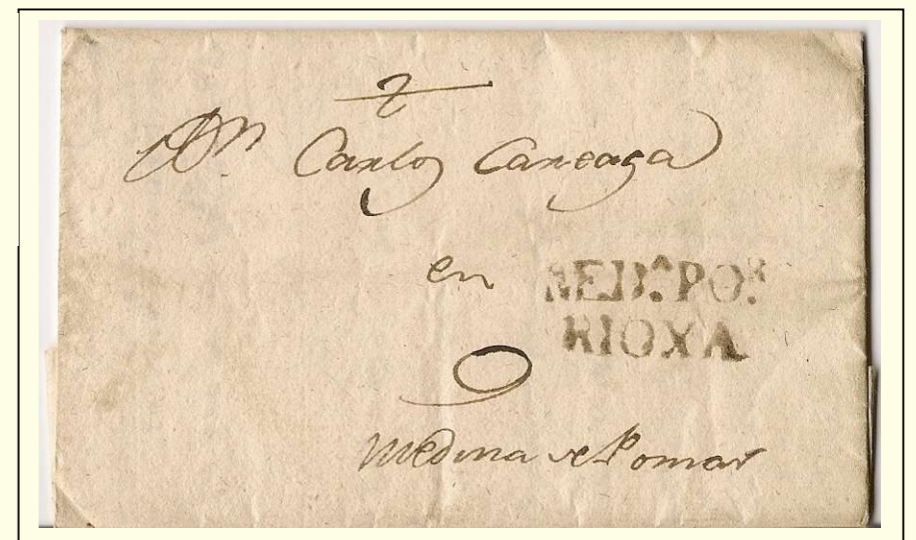 Dn. Carlos Careaga
en
MED.A PO.R
RIOXA
9
Medina de Pomar